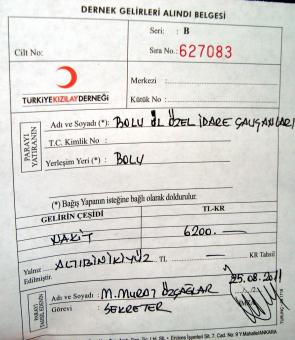 DERNEK GELİRLERİ ALINDI BELGESİ
Seri: B
Cilt No: Sıra No: 627083
Merkezi :
TÜRKİYE KIZILAY DERNEĞİ Kütük No :
PARAYI YATIRANIN
Adı ve Soyadı (*): BOLU İL ÖZEL İDARE ÇALIŞANLARI
T.C. Kimlik No :
Yerleşim Yeri (*) : BOLU
(*) Bağış Yapanın isteğine bağlı olarak doldurulur.
GELİRİN ÇEŞİDİ TL-KR
NAKİT 6200.—
Yalnız ALTIBİNİKİYÜZ TL — KR Tahsil
Edilmiştir. 25.08.2011
Adı ve Soyadı : M. MURAT ÖZÇAĞLAR
Görevi : SEKRETER